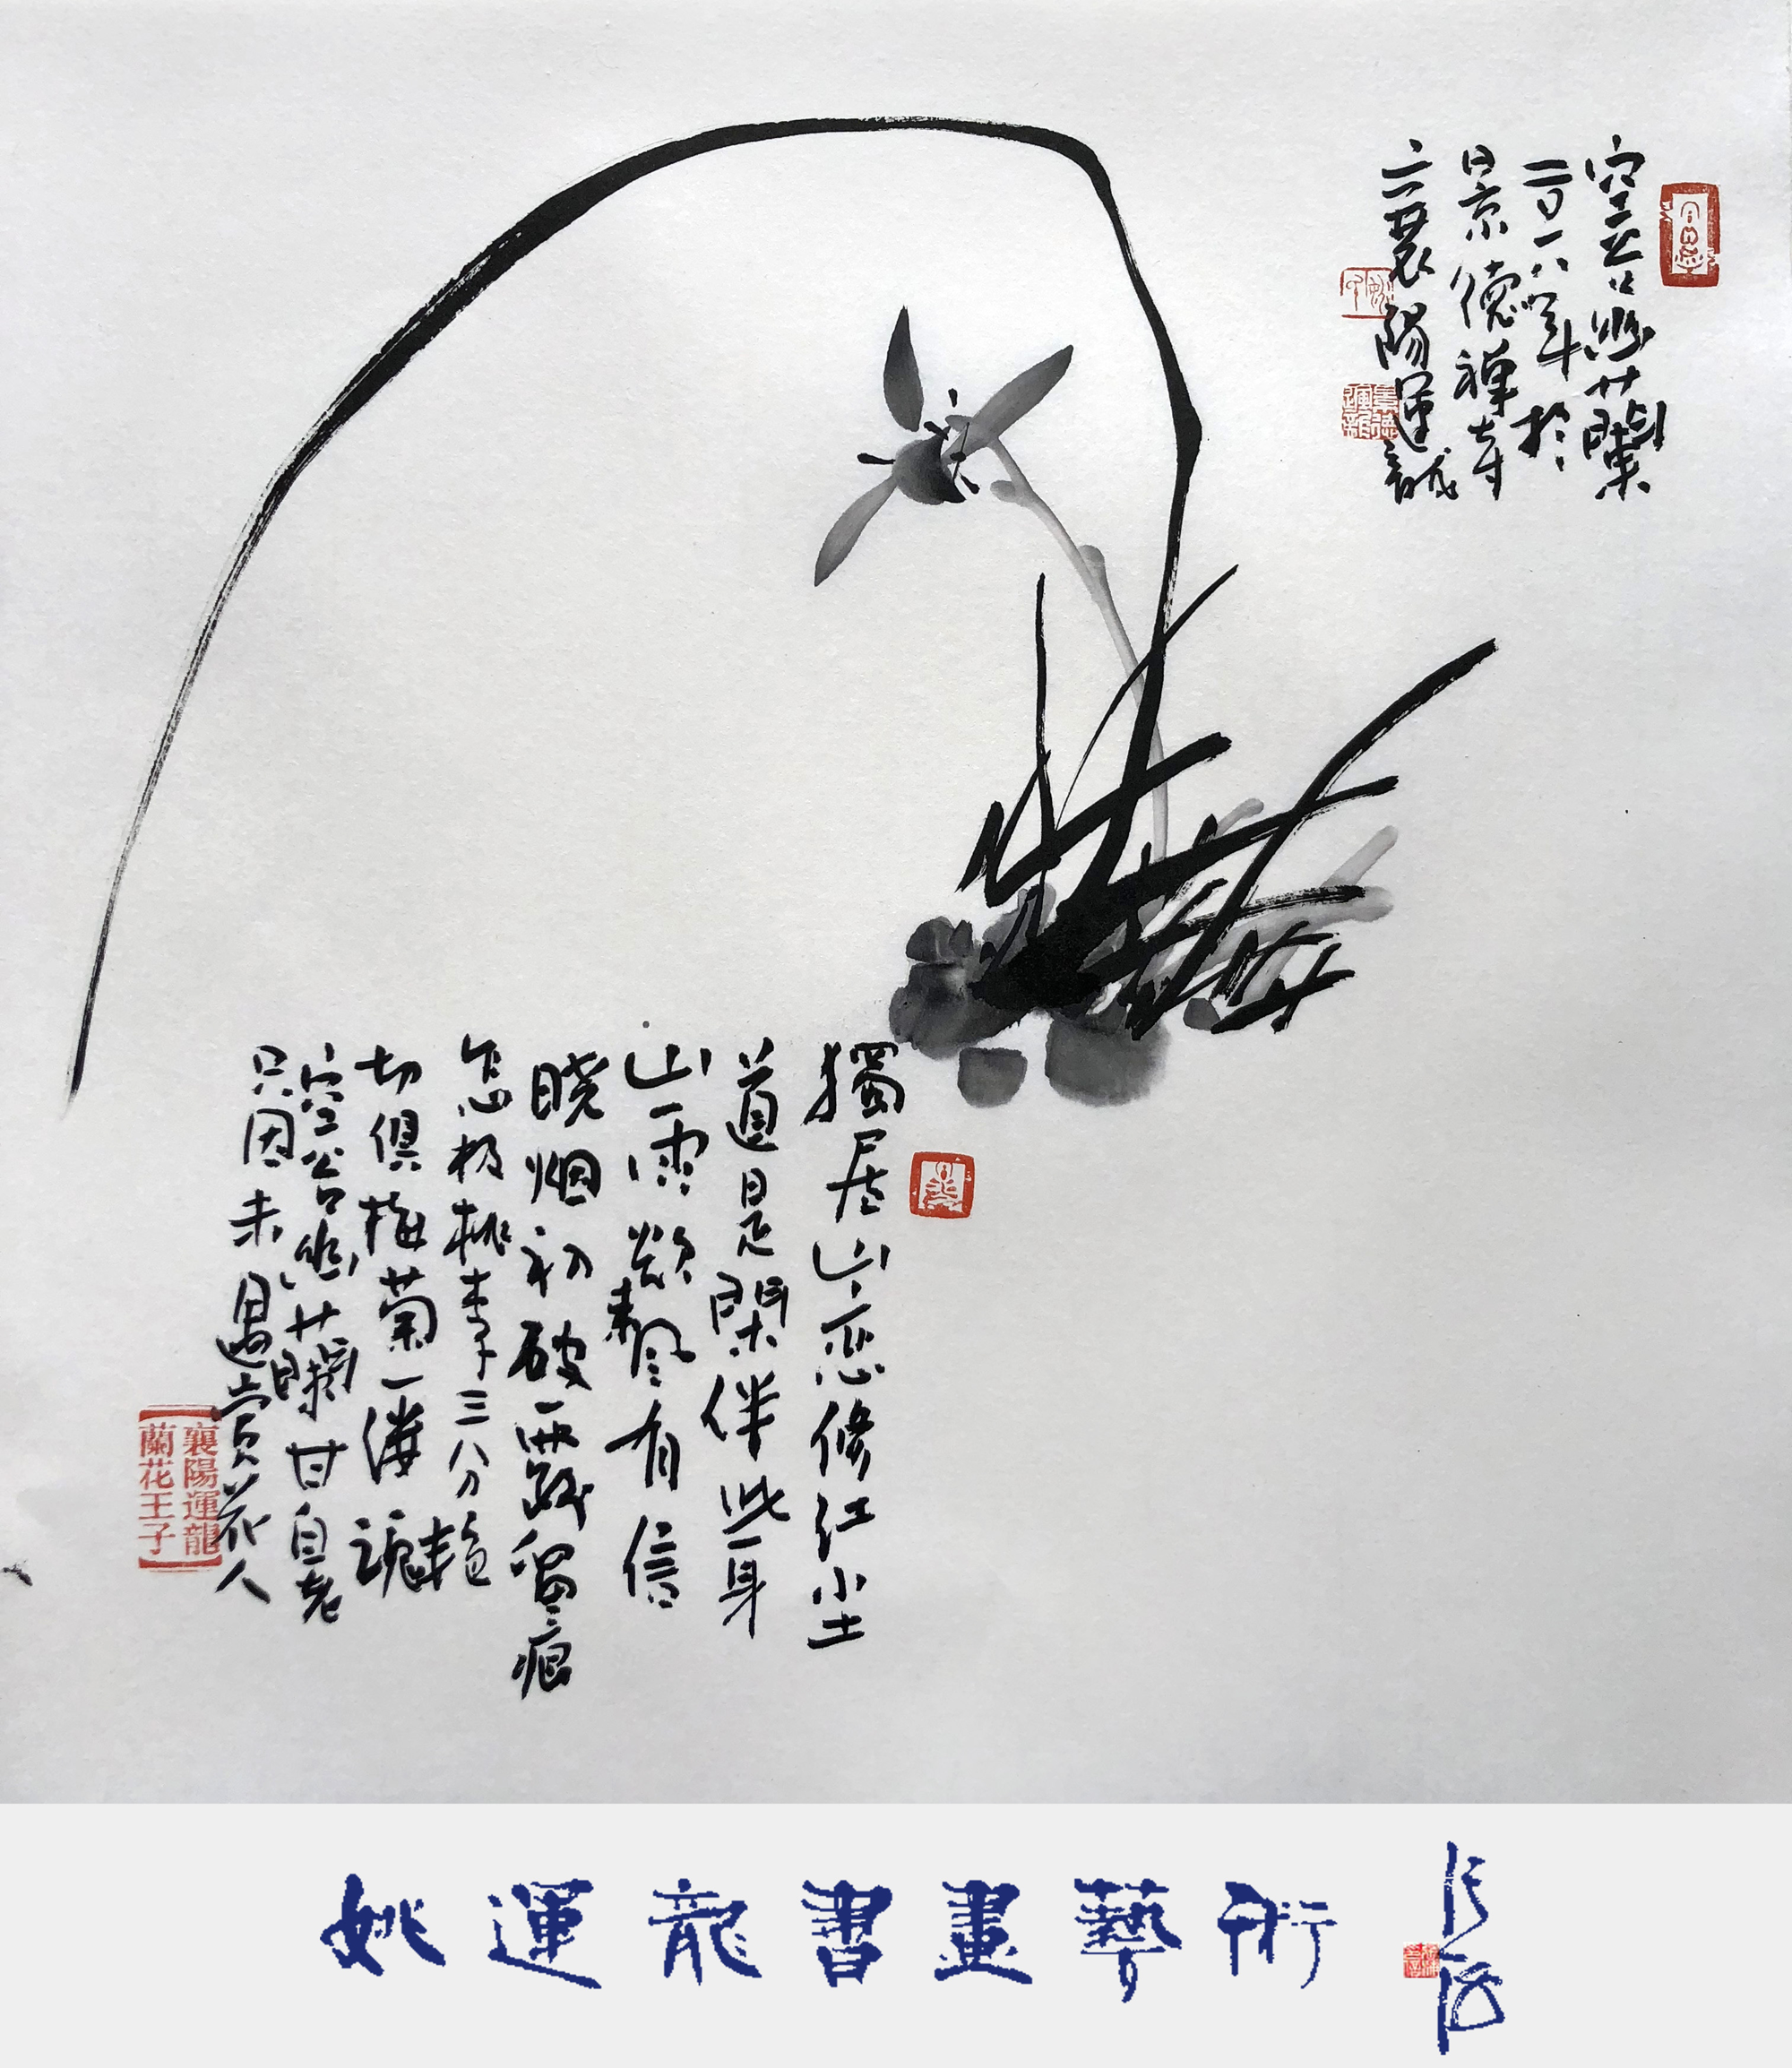 空谷幽蘭
二〇一八年於
景德禪寺
襄陽運龍
獨居山恋修红尘
道是閑伴此一身
山雲欲來風有信
晓烟初破露留痕
怎极桃李三分艳
切俱梅菊一缕魂
空谷幽蘭甘自老
只因未遇赏花人
襄陽運龍
蘭花王子
姚運龍書畫藝術